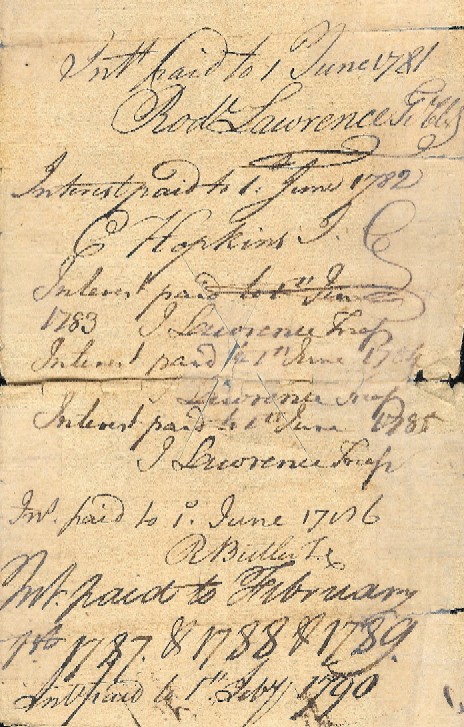 Intt paid to 1 June 1781
Rodk Lawrence
Interest paid to 1. June 1782
E Hopkins T.
Interest paid to 1st June
1783 J Lawrence Treasr
Interest paid to 1st June 1784
J Lawrence Treasr
Interest paid to 1st June 1785
J Lawrence Treasr
Int. paid to 1. June 1786
R Butler Tr
Int. paid to February
1st 1787. & 1788 & 1789.
Int paid to 1st Feby 1790